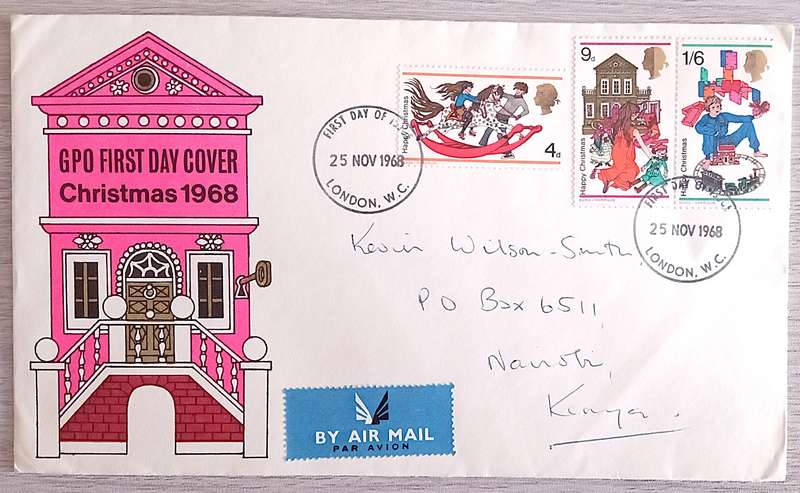 GPO FIRST DAY COVER
Christmas 1968
FIRST DAY OF
25 NOV 1968
LONDON. W.C.
Happy Christmas
4d
9d
Happy Christmas
1/6
Happy Christmas
FIRST DAY OF
25 NOV 1968
LONDON. W.C.
Kevin Wilson-Smith,
PO Box 6511,
Nairobi,
Kenya.
BY AIR MAIL
PAR AVION